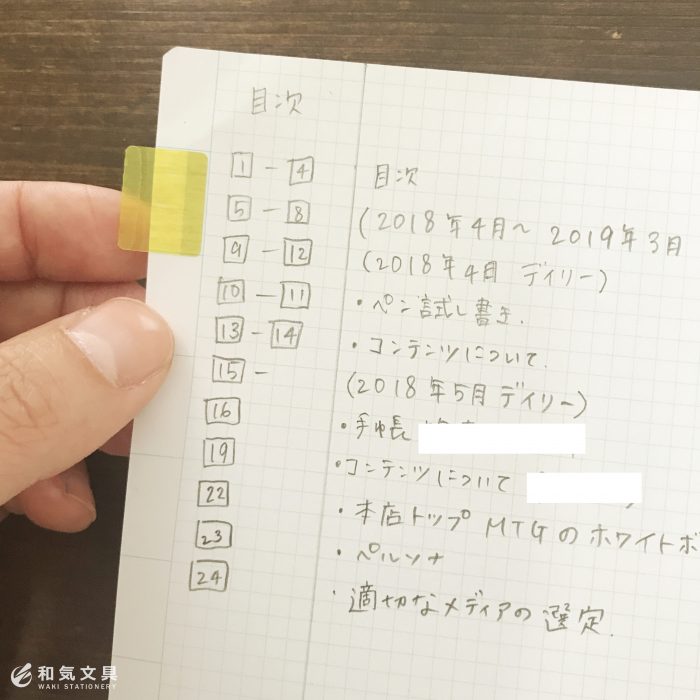 目次
1 − 4 目次
5 − 8 (2018年4月〜2019年3月
9 − 12 (2018年4月 デイリー)
10 − 11 ・ペン試し書き.
13 − 14 ・コンテンツについて.
15 − (2018年5月デイリー)
16 ・手帳
19 ・コンテンツについて
22 ・本店トップMTGのホワイトボ
23 ・ペルソナ
24 ・適切なメディアの選定.
和気文具
WAKI STATIONERY